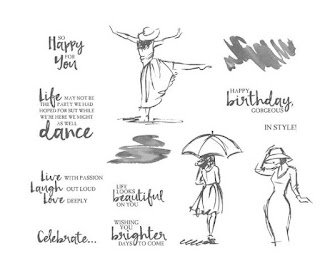 SO
Happy
FOR
You
Life MAY NOT BE
THE PARTY WE HAD
HOPED FOR BUT WHILE
WE'RE HERE WE MIGHT
AS WELL
dance
Live WITH PASSION
Laugh OUT LOUD
Love DEEPLY
Celebrate...
LIFE
LOOKS
beautiful
ON YOU
WISHING
YOU
brighter
DAYS TO COME
HAPPY
birthday,
GORGEOUS
IN STYLE!